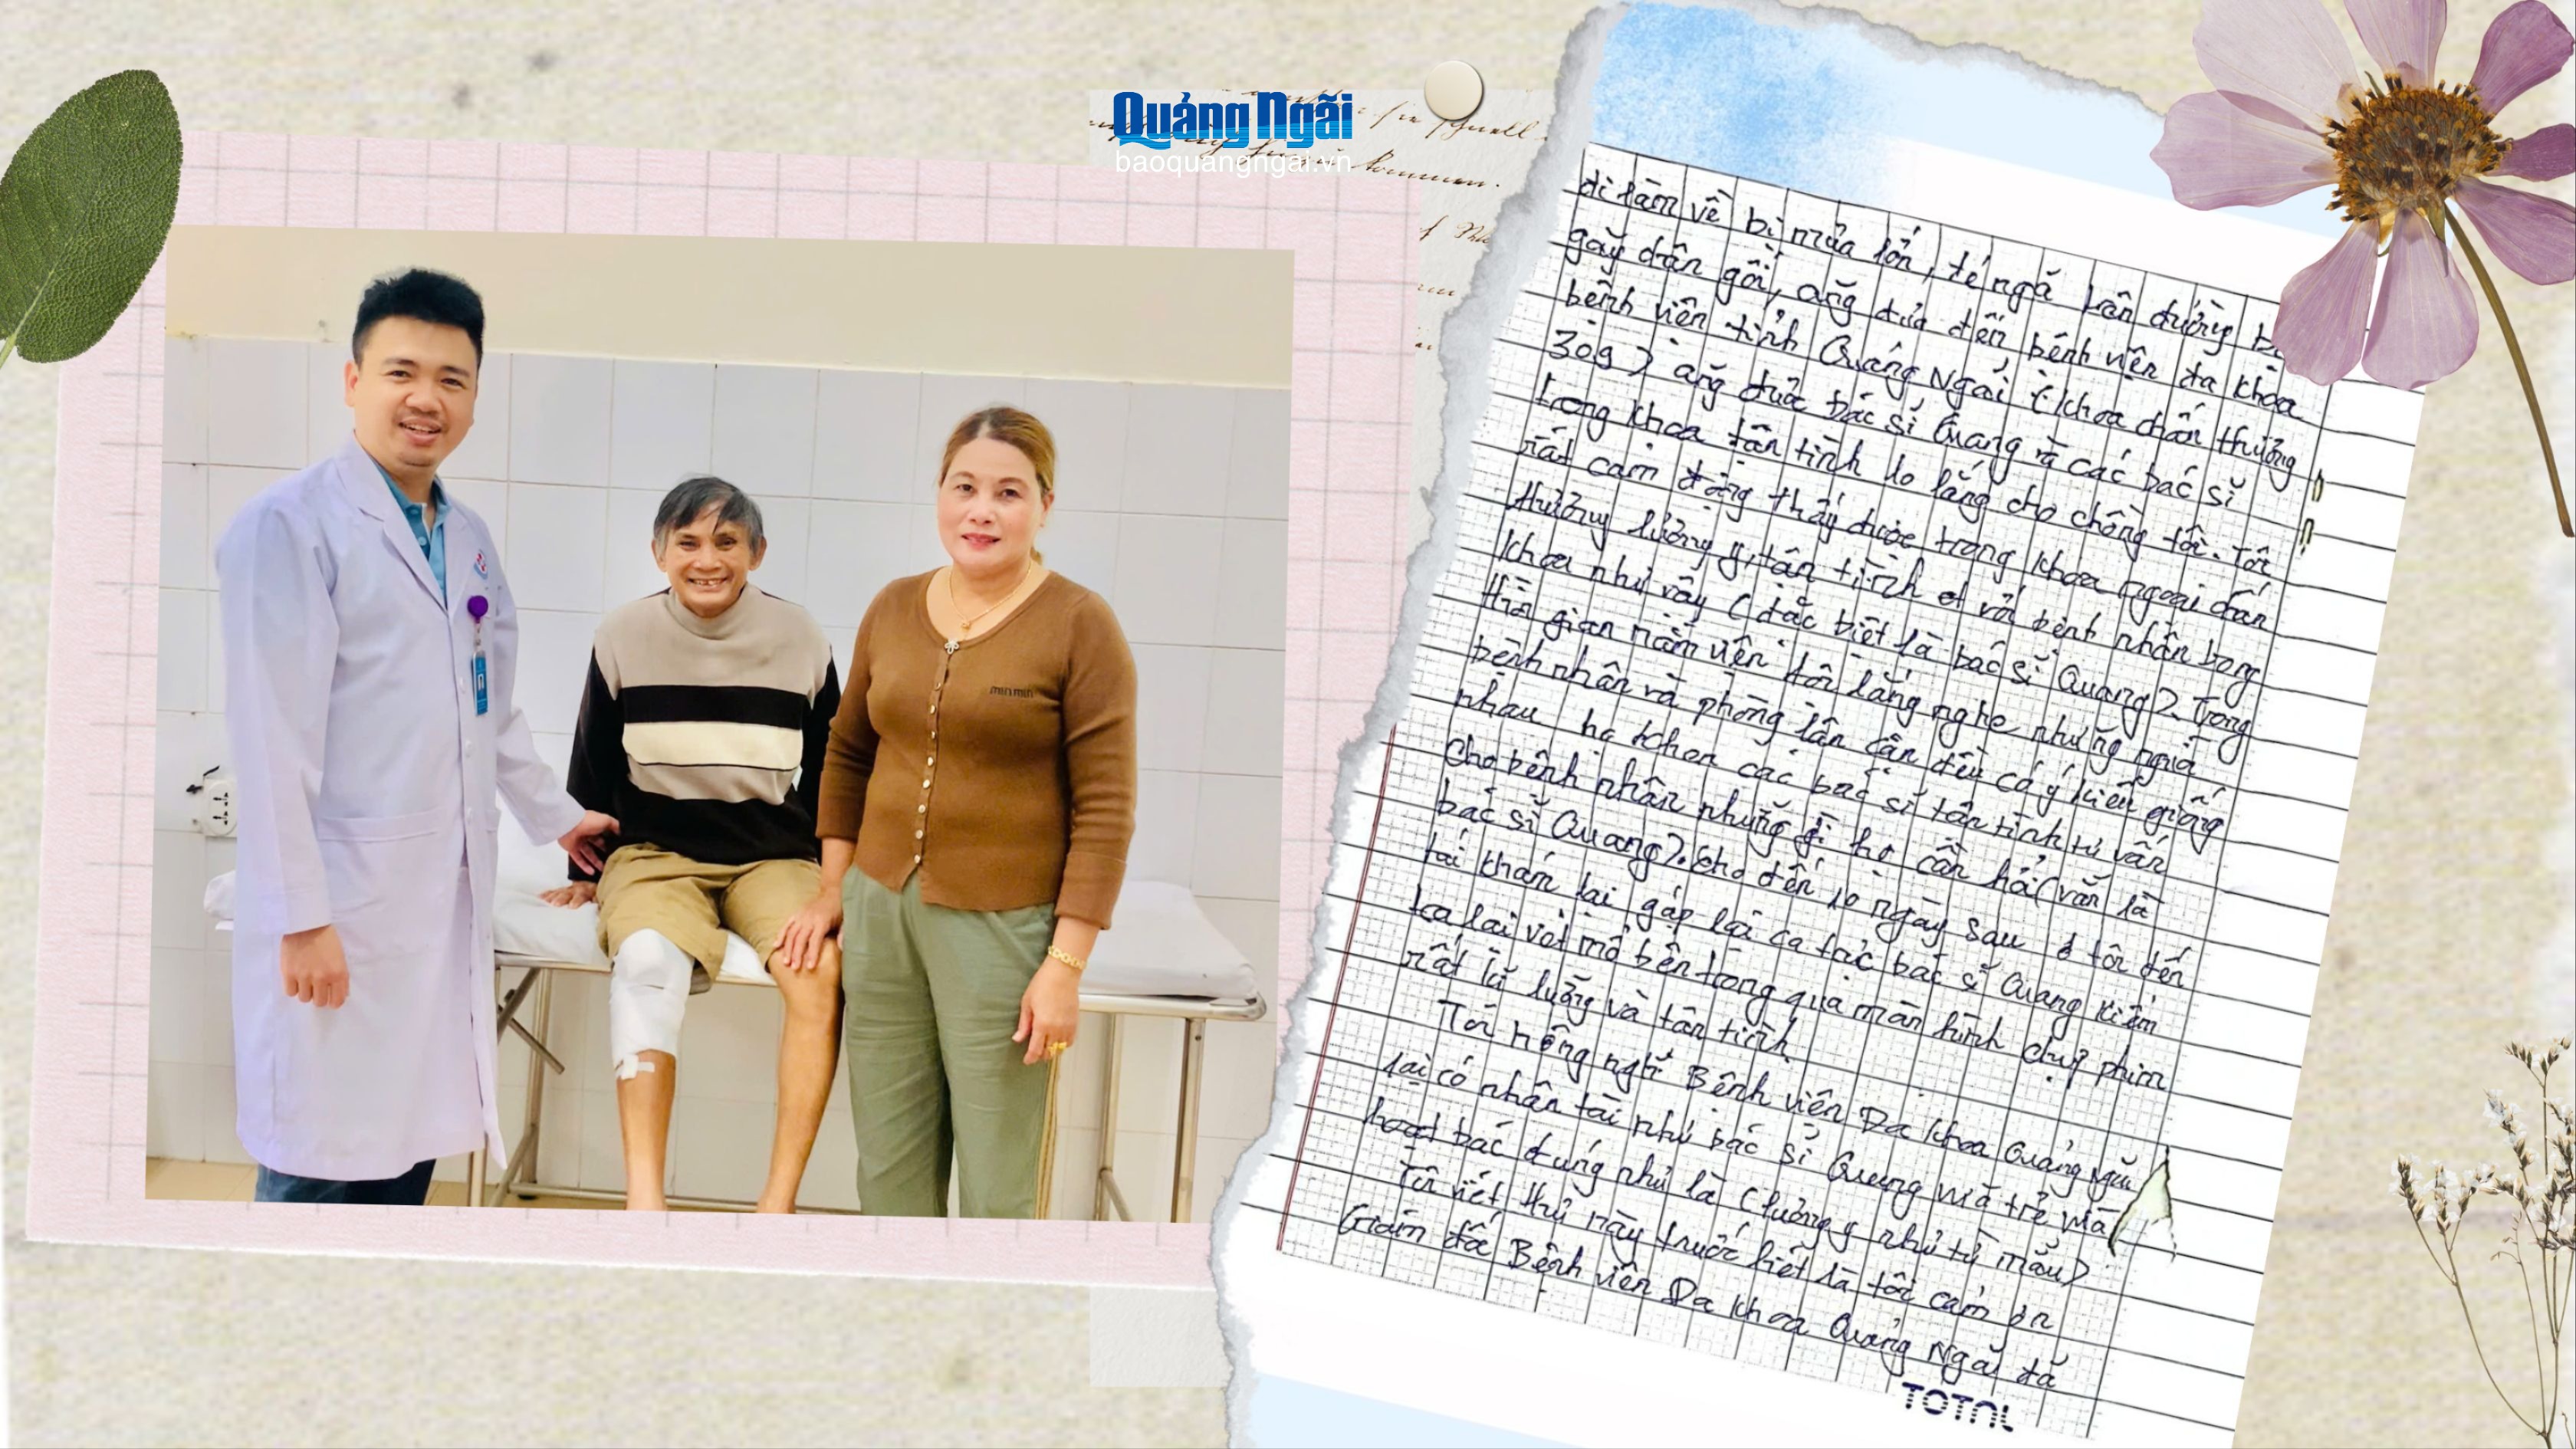 Quảng Ngãi
baoquangngai.vn
minmin
đi làm về bị mưa lớn, té ngã trên đường bị
gãy chân gối, anh đưa đến bệnh viện đa khoa
bệnh viện tỉnh Quảng Ngãi (khoa chấn thương
309) anh được bác sĩ Quang và các bác sĩ
trong khoa tận tình lo lắng cho chồng tôi. Tôi
rất cảm động thấy được trong khoa ngoại chấn
thương lương y, tận tình với bệnh nhân trong
khoa như vậy (đặc biệt là bác sĩ Quang). Trong
thời gian nằm viện tôi lắng nghe những người
bệnh nhân và phòng lân cận đều có ý kiến giống
nhau họ khen các bác sĩ tận tình tư vấn
cho bệnh nhân những gì họ cần hỏi (vẫn là
bác sĩ Quang). Cho đến 10 ngày sau tôi đến
tái khám lại gặp lại ca trực bác sĩ Quang kiểm
tra lại vết mổ bên trong qua màn hình chụp phim
rất kĩ lưỡng và tận tình.
Tôi nghĩ Bệnh viện Đa khoa Quảng Ngãi
lại có nhân tài như bác sĩ Quang mà trẻ mà
hoạt bác đúng như là (lương y như từ mẫu)
Tôi viết thư này trước hết là tôi cảm ơn
Giám đốc Bệnh viện Đa khoa Quảng Ngãi đã
TOTAL